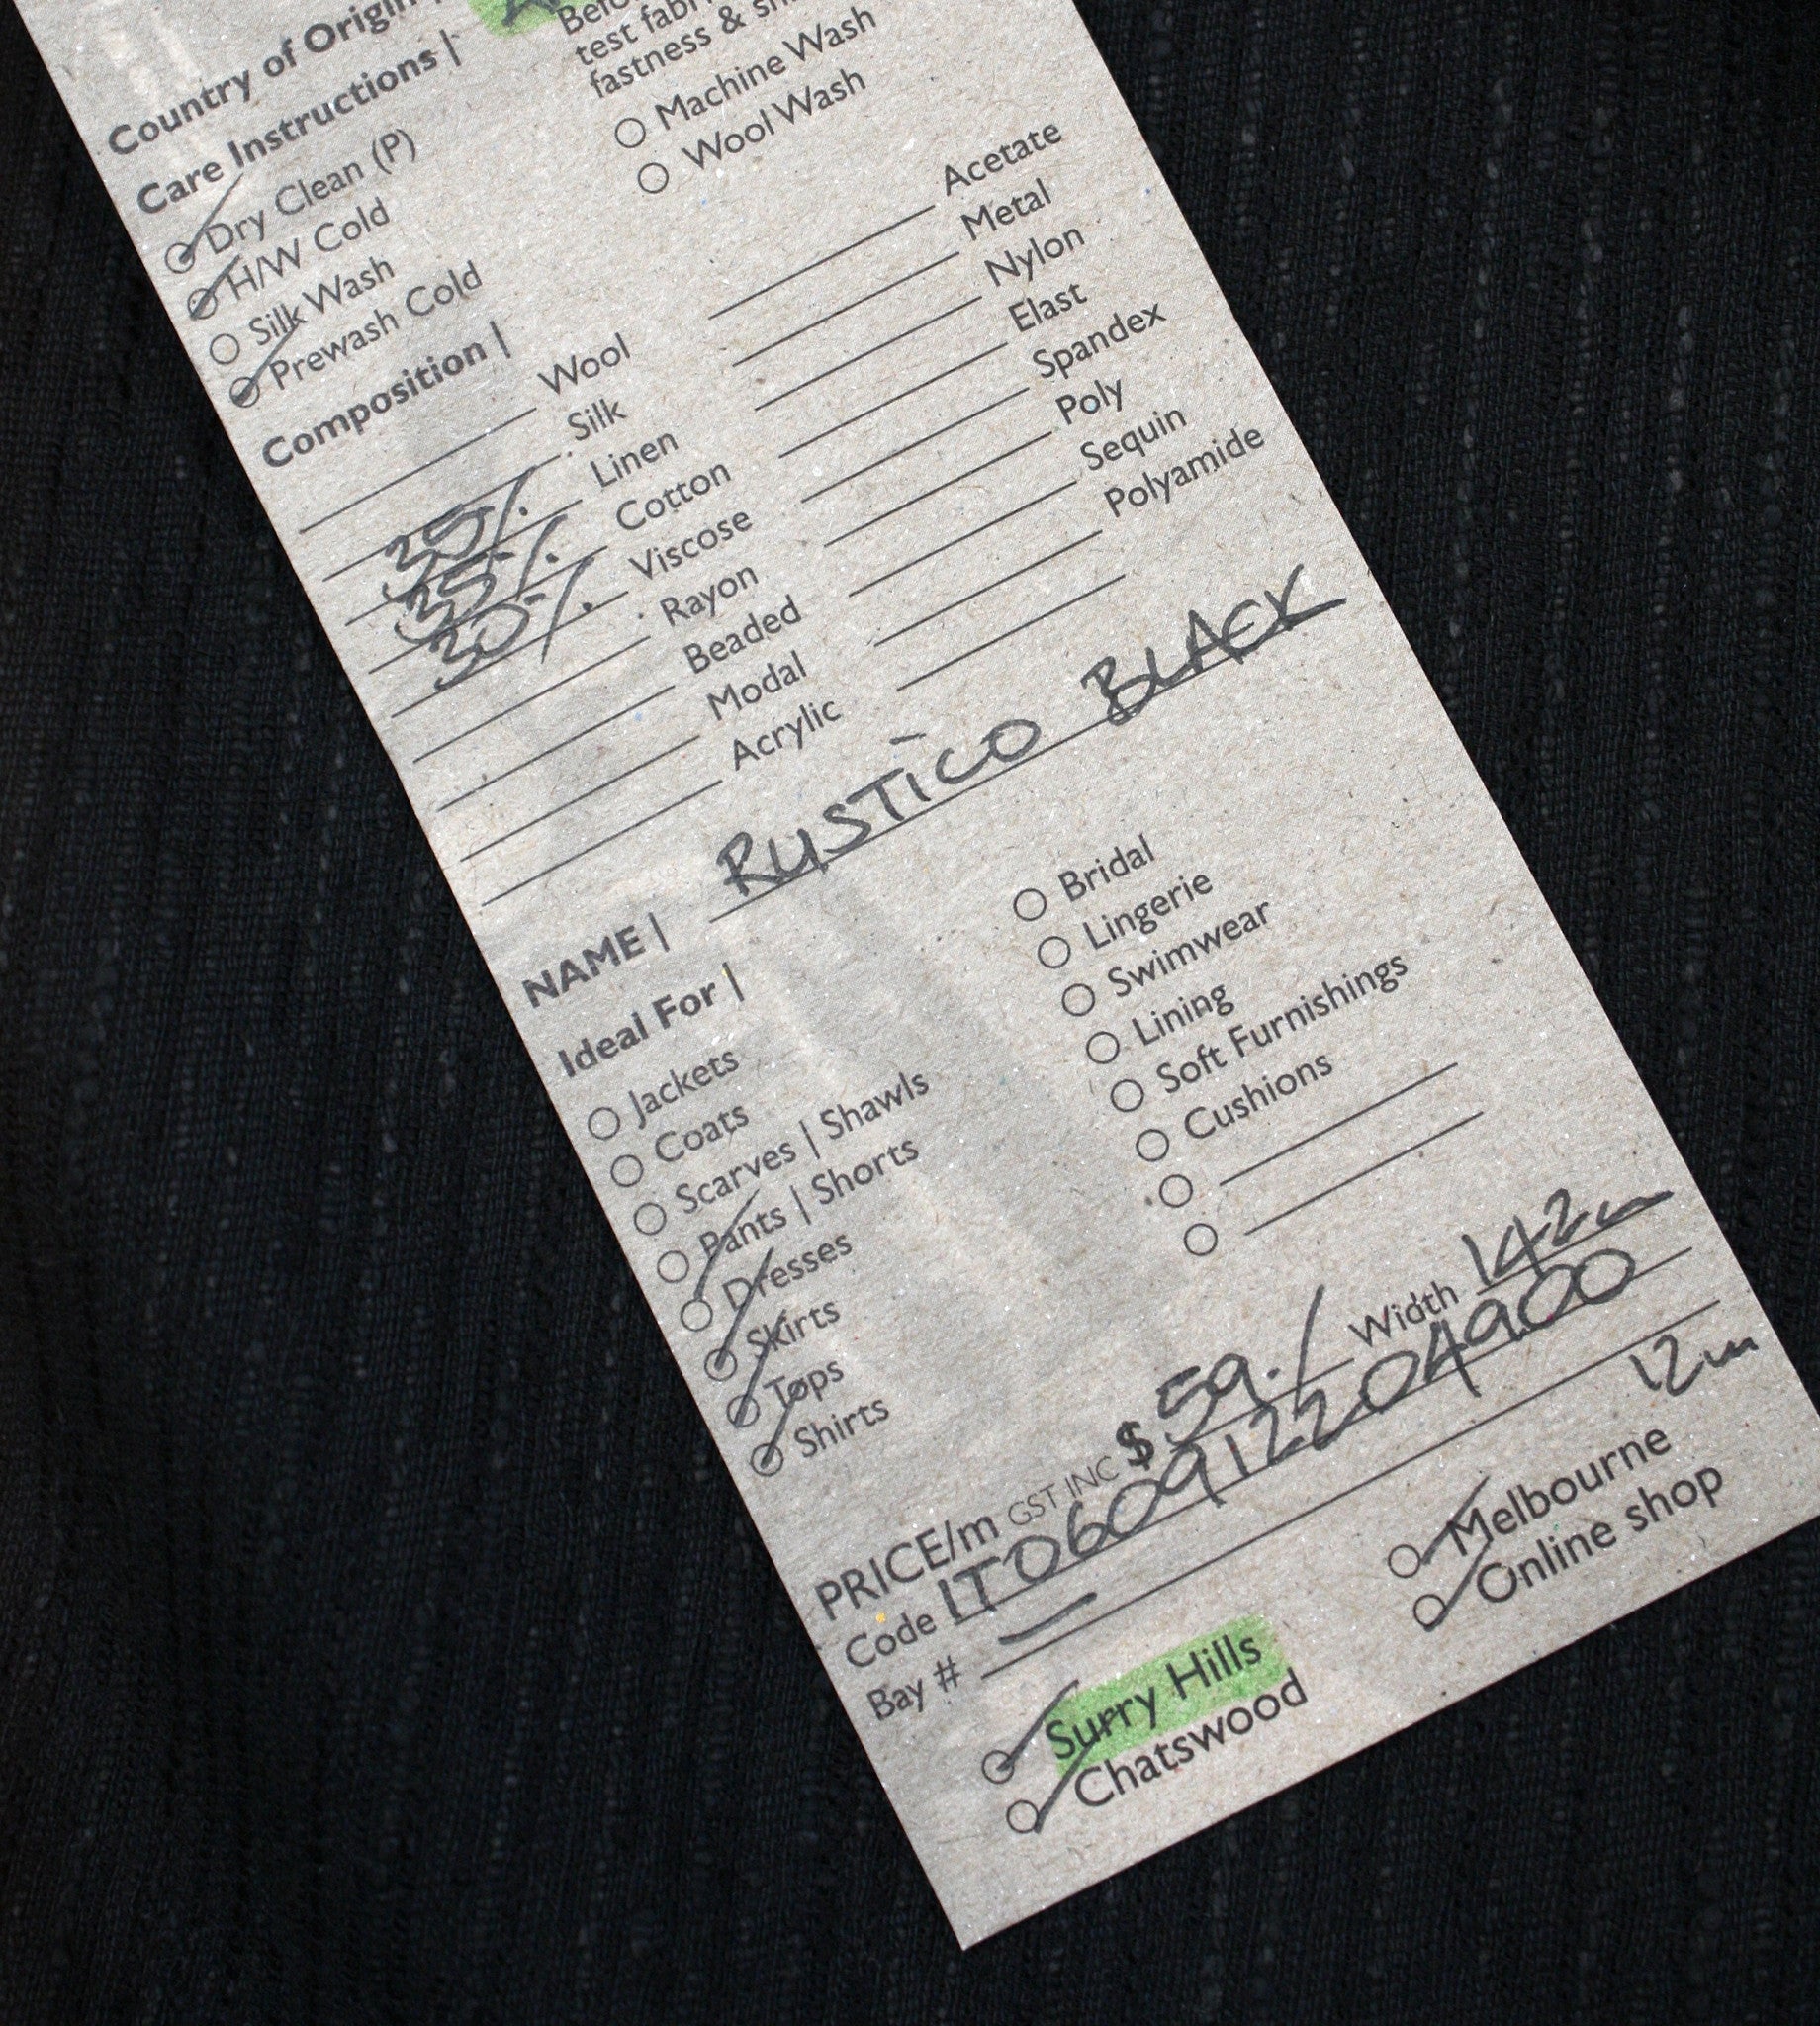 Country of Origin |
Care Instructions |
test fabric
fastness &
Dry Clean (P)
Machine Wash
H/W Cold
Wool Wash
Silk Wash
Prewash Cold
Composition |
Wool
Acetate
Silk
Metal
35% Linen
Nylon
35% Cotton
Elast
30% Viscose
Spandex
Rayon
Poly
Beaded
Sequin
Modal
Polyamide
Acrylic
NAME | RUSTICO BLACK
Ideal For |
Jackets
Bridal
Coats
Lingerie
Scarves | Shawls
Swimwear
Pants | Shorts
Lining
Dresses
Soft Furnishings
Skirts
Cushions
Tops
Shirts
PRICE/m GST INC $ 59./ Width 142
Code IT0609122204900
Bay # — 12m
Surry Hills
Melbourne
Chatswood
Online shop